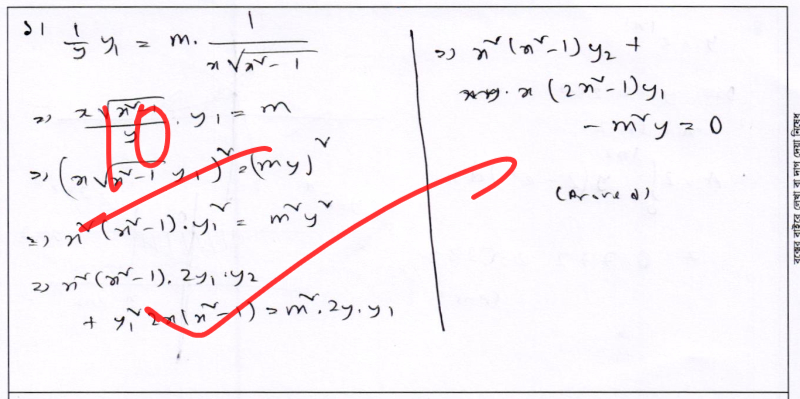 ১। 1/y y₁ = m. 1/(x√(x²-1))
⇒ (x√(x²-1))/y . y₁ = m
10
⇒ (x√(x²-1) y₁)² = (my)²
⇒ x²(x²-1).y₁² = m²y²
⇒ x²(x²-1).2y₁.y₂
+ y₁² 2x(x²-1) = m².2y.y₁
⇒ x²(x²-1)y₂ +
x(2x²-1)y₁
- m²y = 0
(Proved)
বক্সের বাইরে লেখা বা দাগ দেয়া নিষেধ